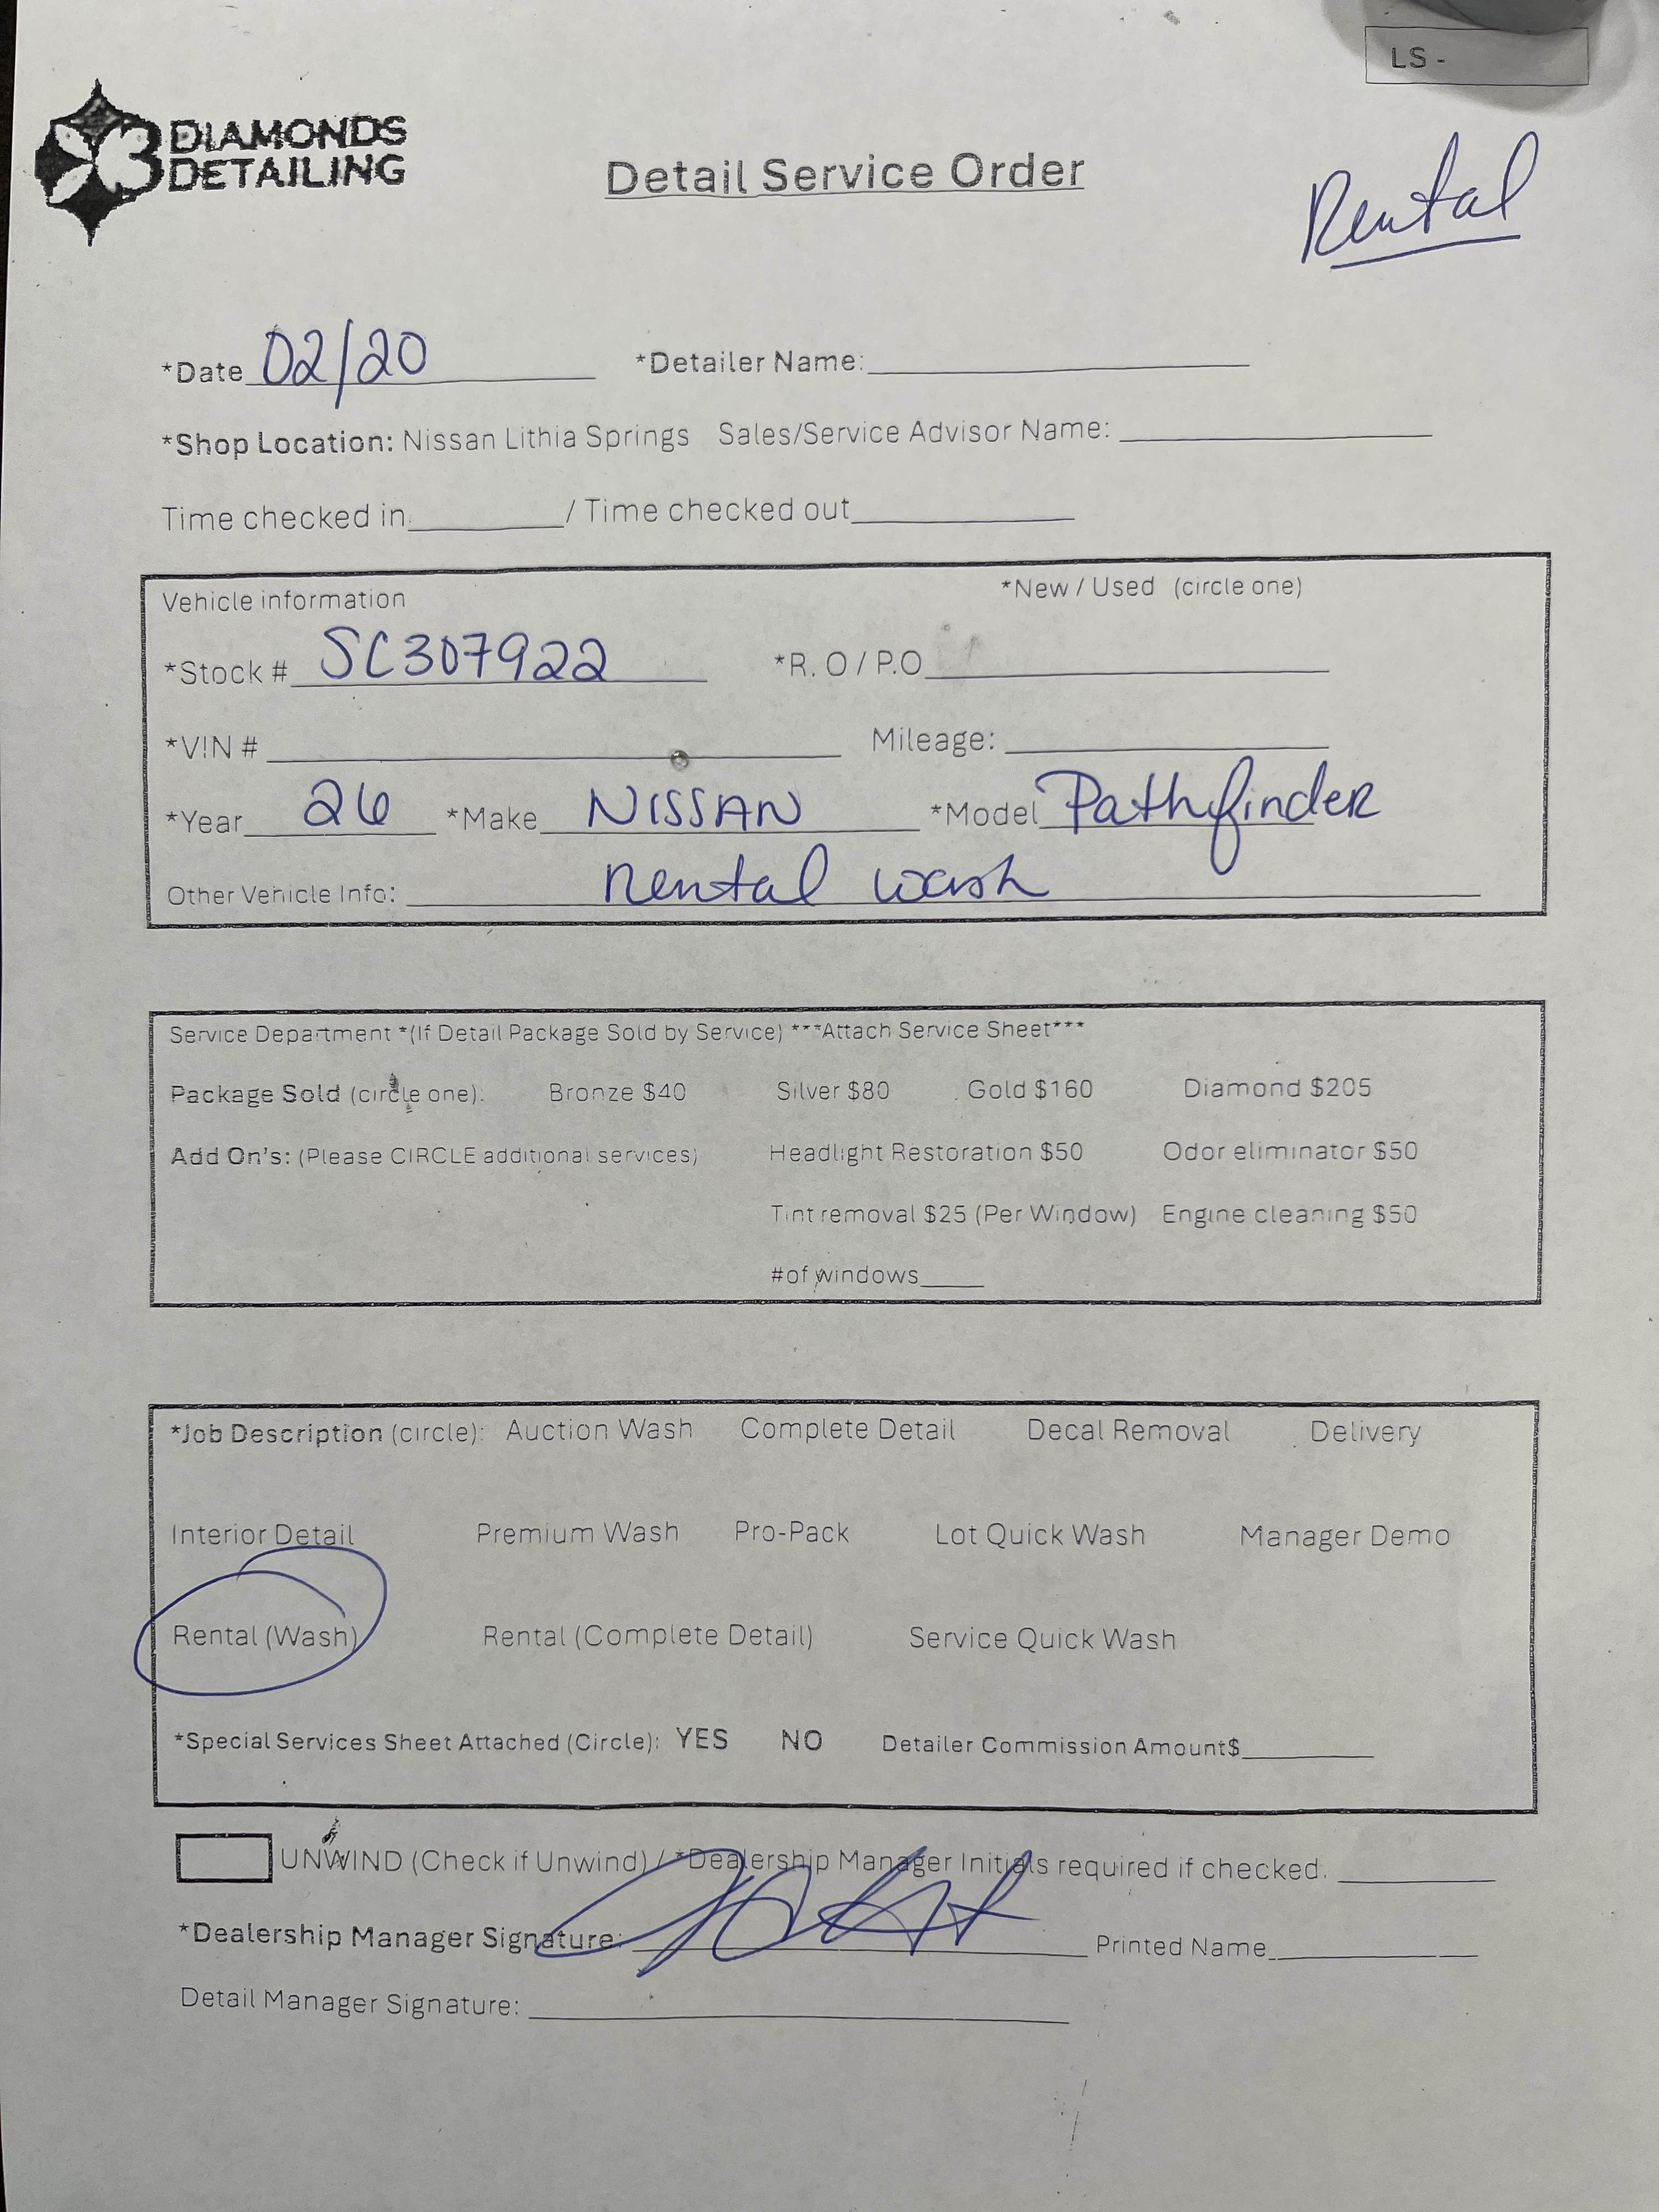 LS -
3 DIAMONDS
DETAILING
Detail Service Order
Rental
*Date 02/20 *Detailer Name:
*Shop Location: Nissan Lithia Springs Sales/Service Advisor Name:
Time checked in / Time checked out
Vehicle information *New / Used (circle one)
*Stock # SC307922 *R. O / P.O
*VIN # Mileage:
*Year 26 *Make NISSAN *Model Pathfinder
Other Vehicle Info: Rental wash
Service Department *(If Detail Package Sold by Service) ***Attach Service Sheet***
Package Sold (circle one): Bronze $40 Silver $80 Gold $160 Diamond $205
Add On's: (Please CIRCLE additional services) Headlight Restoration $50 Odor eliminator $50
Tint removal $25 (Per Window) Engine cleaning $50
#of windows
*Job Description (circle): Auction Wash Complete Detail Decal Removal Delivery
Interior Detail Premium Wash Pro-Pack Lot Quick Wash Manager Demo
Rental (Wash) Rental (Complete Detail) Service Quick Wash
*Special Services Sheet Attached (Circle): YES NO Detailer Commission Amount$
UNWIND (Check if Unwind) / *Dealership Manager Initials required if checked.
*Dealership Manager Signature: Printed Name
Detail Manager Signature: